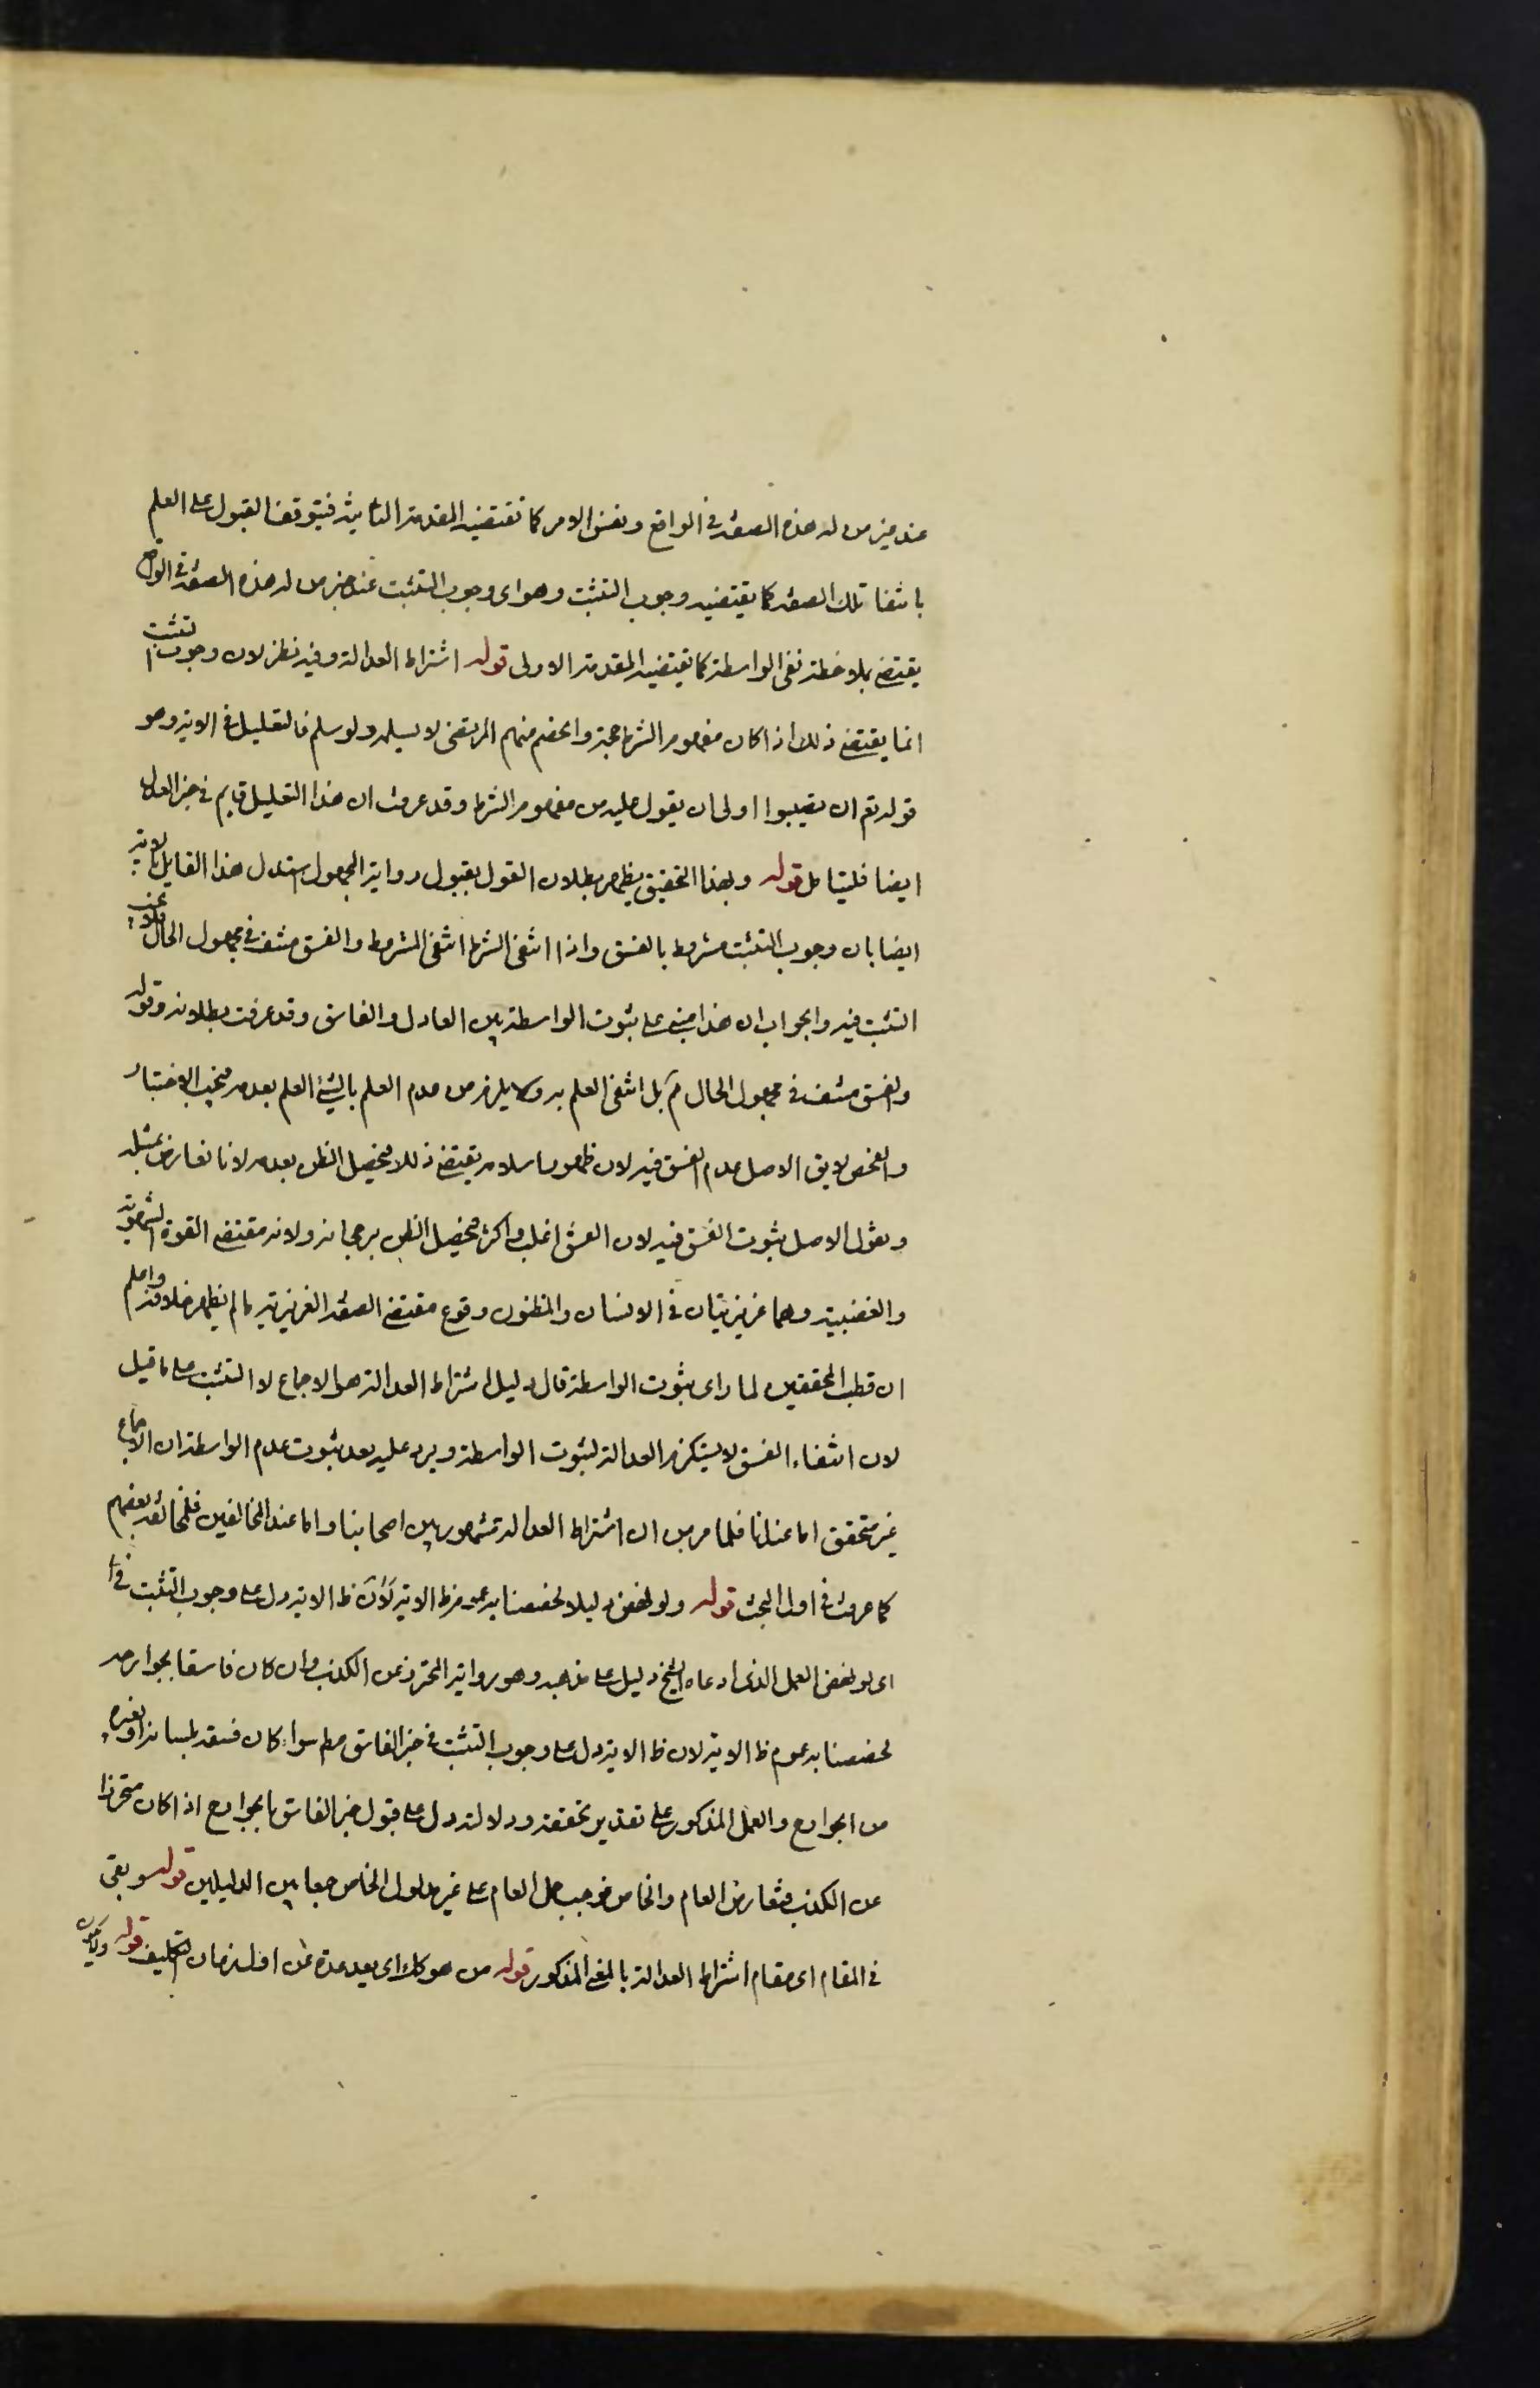 عند خبر من له هذه الصفة في الواقع ونفس الامر كما تقتضيه المقدمة الثانية فيتوقف القبول على العلم
بانتفا تلك الصفة كما يقتضيه وجوب التثبت وهو اى وجوب التثبت عند خبر من له هذه الصفة في الواقع
يقتضي بملاحظة نفى الواسطة كما يقتضيه المقدمة الاولى قوله اشتراط العدالة وفيه نظر لان وجوب التثبت
انما يقتضي ذلك اذا كان مفهوم الشرط حجة والخصم منهم المرتضى لا يسلمه ولو سلم فالتعليل في الاية وهو
قوله تع ان تصيبوا اولى ان يعول عليه من مفهوم الشرط وقد عرفت ان هذا التعليل قايم في خبر العدل
ايضا فليتامل قوله وبهذا التحقيق يظهر بطلان القول بقبول رواية المجهول استدل هذا القايل بالاية
ايضا بان وجوب التثبت مشروط بالفسق واذا انتفى الشرط انتفى المشروط والفسق منتف في مجهول الحال فلا يجب
التثبت فيه والجواب ان هذا مبنى على ثبوت الواسطة بين العادل والفاسق وقد عرفت بطلانه وقوله
والفسق منتف في مجهول الحال مم بل انتفى العلم به ولا يلزم من عدم العلم بالشئ العلم بعدمه فيجب الاختبار
والفحص لا يق الاصل عدم الفسق فيه لان ظهور اسلامه يقتضي ذلك فيحصل الظن بعدمه لانا نعارض بمثله
ونقول الاصل ثبوت الفسق فيه لان الفسق اغلب واكثر فيحصل الظن برجحانه ولانه مقتضى القوة الشهوية
والغضبية وهما غريزيتان في الانسان والمظنون وقوع مقتضى الصفة الغريزية ما لم يظهر خلافه واعلم
ان قطب المحققين لما راى ثبوت الواسطة قال دليل اشتراط العدالة هو الاجماع لا التثبت على ما قيل
لان انتفاء الفسق لا يستلزم العدالة لثبوت الواسطة ويرد عليه بعد ثبوت عدم الواسطة ان الاجماع
غير متحقق اما عندنا فلما مر من ان اشتراط العدالة مشهور بين اصحابنا واما عند المخالفين فلمخالفة بعضهم
كما عرفت في اول البحث قوله ولو نهض دليلا لخصصنا به عموم ظ الاية لان ظ الاية دل على وجوب التثبت في
اى لو نهض العمل الذى ادعاه الشيخ دليل على مذهبه وهو رواية المتحرز عن الكذب وان كان فاسقا بجوارحه
لخصصنا به عموم ظ الاية لان ظ الاية دل على وجوب التثبت في خبر الفاسق مط سواء كان فسقه بلسانه او بغيره
من الجوارح والعمل المذكور على تقدير تحققه ودلالته دل على قبول خبر الفاسق بالجوارح اذا كان متحرزا
عن الكذب فتعارض العام والخاص فوجب حمل العام على غير مدلول الخاص جمعا بين الدليلين قوله وبقى
في المقام اى مقام اشتراط العدالة بالمعنى المذكور قوله من هو كك اى بعيد عهده عن اول زمان التكليف قوله ولا يكون